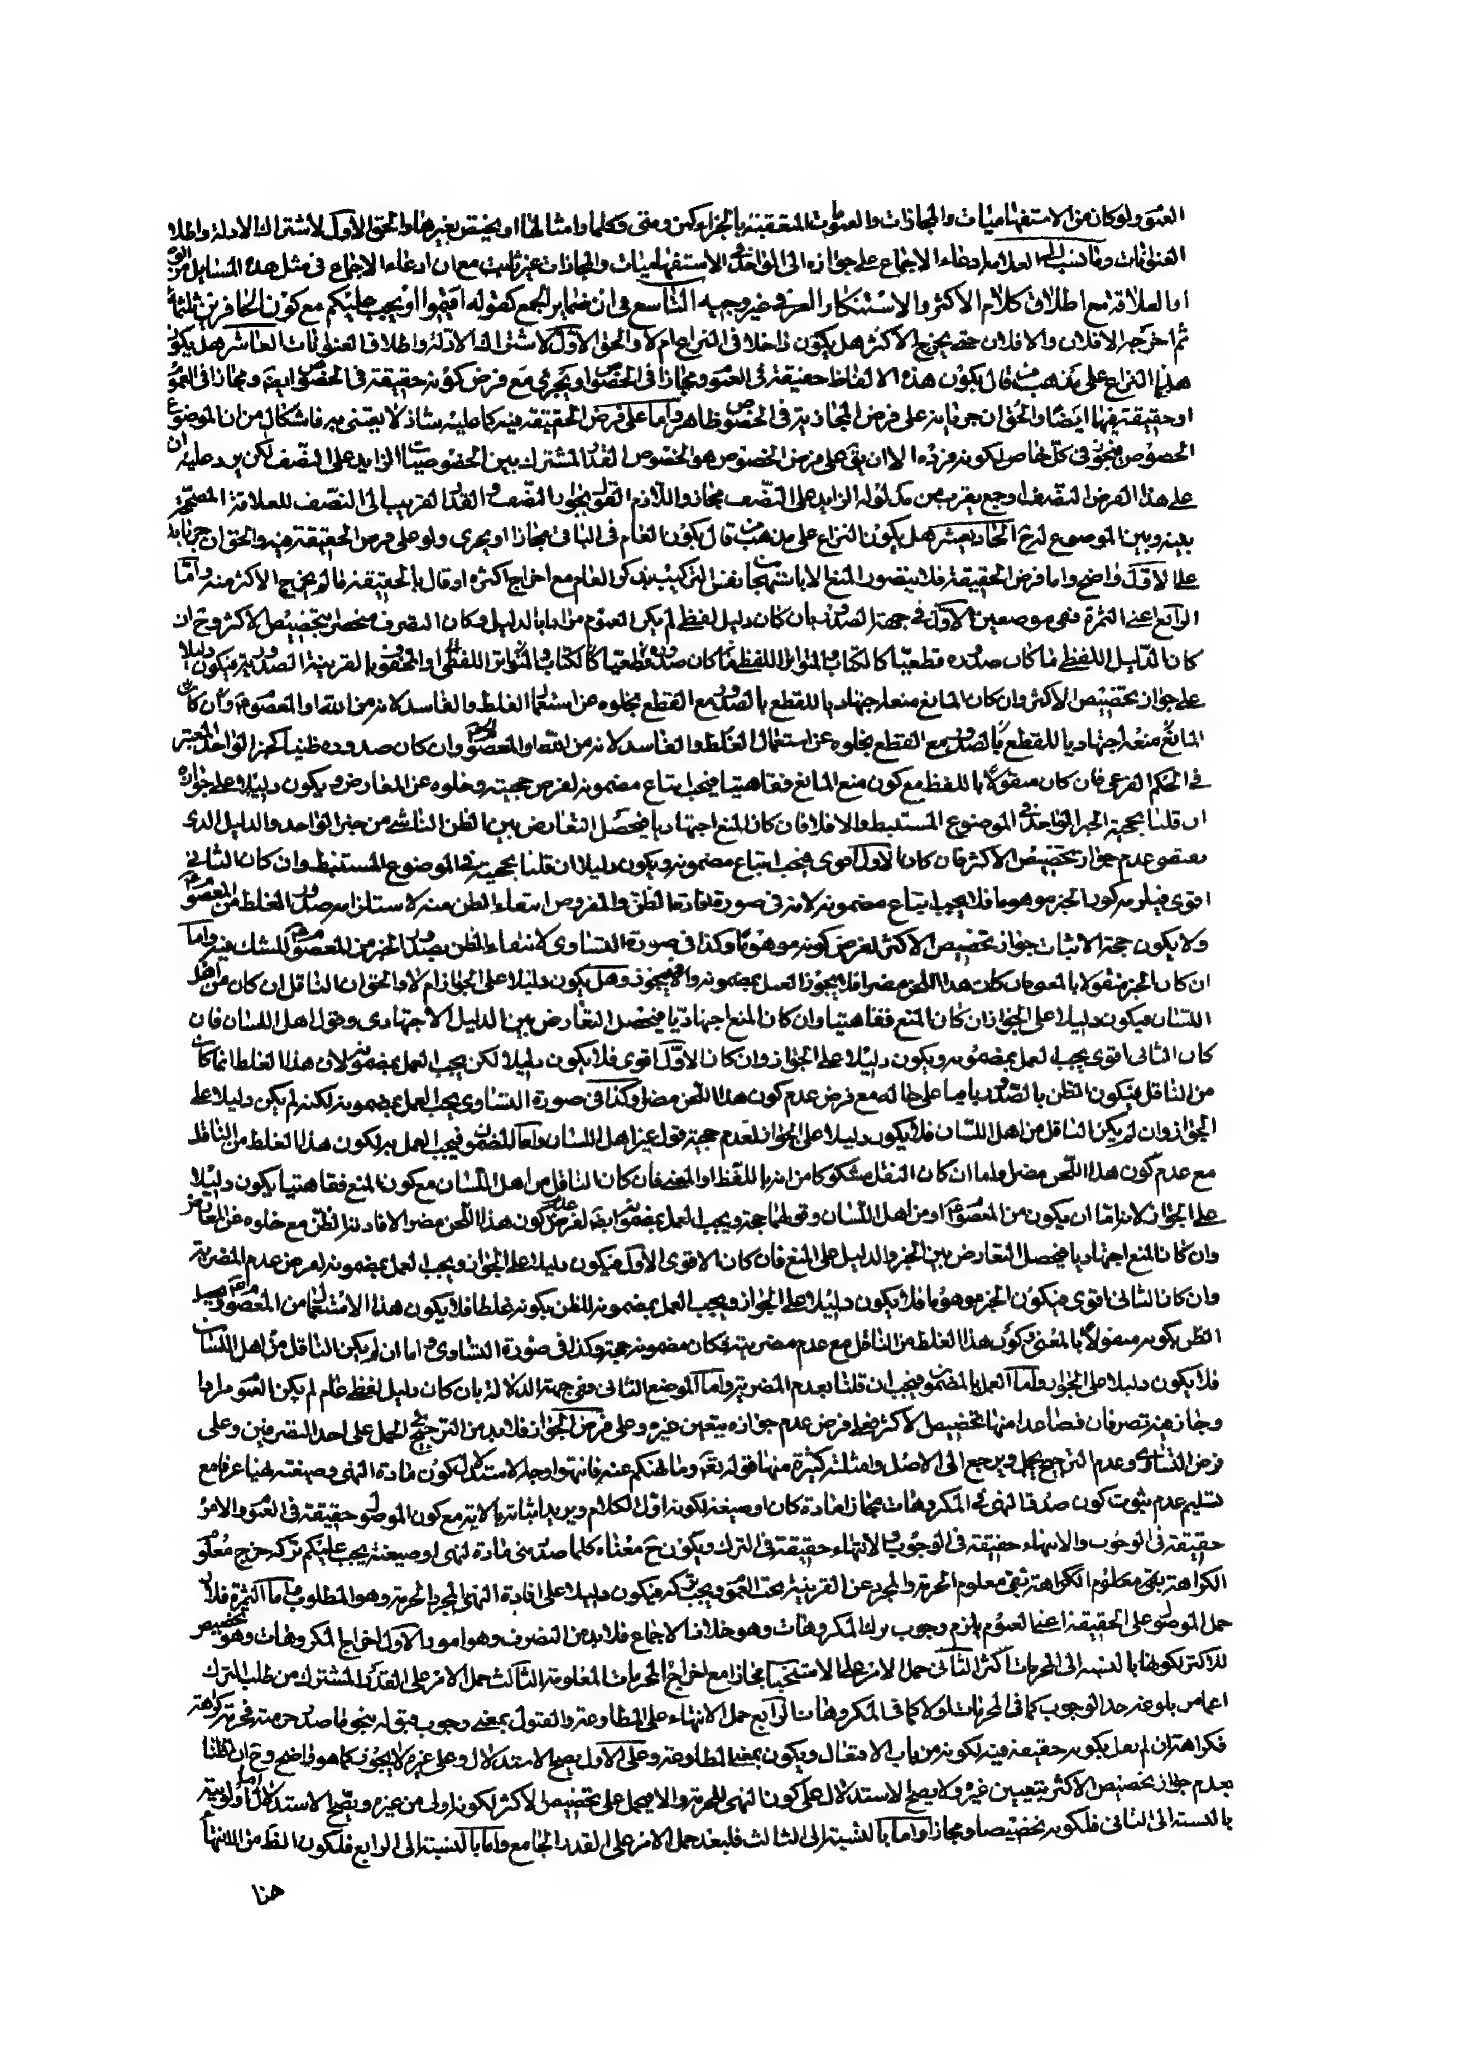 العموم ولو كان من الاستفهاميات والمجازات والعمومات المتعقبة بالجزاء كمن ومتى وكلما وامثالها او يختص بغيرها والحق الاول لاشتراك الادلة واطلاق
العنوانات وما نسب الى العلامة ادعاء الاجماع على جوازه الى الواحد في الاستفهاميات والمجازات غير ثابت مع ان ادعاء الاجماع في مثل هذه المسايل من
او العلاقة مع اطلاق كلام الاكثر والاستنكار العرفي غير وجيه التاسع في ان ضماير الجمع كقوله اقيموا او يجب عليكم مع كون الحاضرين ثلثمأة
ثم اخرجه الا فلان والا فلان حتى يخرج الاكثر هل يكون داخلا في النزاع ام لا والحق الاول لاشتراك الادلة واطلاق العنوانات العاشر هل يكون
هذا النزاع على مذهب من قال بكون هذه الالفاظ حقيقة في العموم ومجازا في الخصوص او يجري مع فرض كونه حقيقة في الخصوص ايضا ومجازا في العموم
او حقيقة فيهما ايضا والحق ان جريانه على فرض المجازية في الخصوص ظاهر واما على فرض الحقيقة فيه كما عليه شاذ لا يعتنى به فاشكال من ان الموضوع
الخصوص متحقق في كل خاص لكونه فردة الا ان يبقى على فرض الخصوص هو الخصوص القدر المشترك بين الخصوصيات الزايد على النصف لكن يرد عليه ان
على هذا الفرض النصف او جمع يقرب من مدلوله الزايد على النصف مجاز واللازم القول بجواز النصف والقدر القريب الى النصف للعلاقة المصححة
بينه وبين الموضوع له ح الحادي عشر هل يكون النزاع على مذهب من قال بكون العام في الباقي مجازا او يجري ولو على فرض الحقيقة فيه والحق ان جريانه
على الاول واضح واما فرض الحقيقة فلا يتصور المنع الا باستهجان نفس التركيب بذكر العام مع اخراج اكثره او قال بالحقيقة ما لم يخرج الاكثر منه واما
الرابع اعني الثمرة فهي موضعين الاول في جهة الصدور بان كان دليل لفظي لم يكن العموم مرادا بالدليل وكان التصرف منحصرا بتخصيص الاكثر وح ان
كان الدليل اللفظي ما كان صدوره قطعيا كالكتاب والمتواتر اللفظي او المحفوف بالقرينة الصدورية فيكون دليلا
على جواز تخصيص الاكثر وان كان المانع منعه اجتهاديا للقطع بالصدور مع القطع بخلوه عن استعمال الغلط والفاسد لانه من الله او المعصوم وان كان
المانع منعه اجتهاديا للقطع بالصدور مع القطع بخلوه عن استعمال الغلط والفاسد لانه من الله او المعصوم وان كان صدوره ظنيا كخبر الواحد المعتبر
في الحكم الفرعي فان كان منقولا باللفظ مع كون منع المانع فقاهتيا فيجب اتباع مضمونه لفرض حجيته وخلوه عن المعارض ويكون دليلا على جوازه
ان قلنا بحجية الخبر الواحد في الموضوع المستنبط والا فلا فان كان المنع اجتهاديا فيحصل التعارض بين الظن الناشي من خبر الواحد والدليل الذي
يقتضي عدم جواز تخصيص الاكثر فان كان الاول اقوى فيجب اتباع مضمونه ويكون دليلا ان قلنا بحجيته في الموضوع المستنبط وان كان الثاني
اقوى فيلزم كون الخبر موهوما فلا يجب اتباع مضمونه لانه في صورة افادة الظن والمفروض انتفاء الظن منه لاستلزامه صدور الغلط من المعصوم
ولا يكون حجة لاثبات جواز تخصيص الاكثر لفرض كونه موهوما وكذا في صورة التساوي لانتفاء الظن بصدور الخبر من المعصوم للشك فيه واما
ان كان الخبر منقولا بالمعنى فان كان هذا اللحن مضرا فلا يجوز العمل بمضمونه والا فيجوز وهل يكون دليلا على الجواز ام لا والحق ان الناقل ان كان من اهل
اللسان فيكون دليلا على الجواز ان كان المنع فقاهتيا وان كان المنع اجتهاديا فيحصل التعارض بين الدليل الاجتهادي وقول اهل اللسان فان
كان الثاني اقوى يجب العمل بمضمونه ويكون دليلا على الجواز وان كان الاول اقوى فلا يكون دليلا لكن يجب العمل بمضمونه لان هذا الغلط انما كان
من الناقل فيكون الظن بالصدور باقيا على حاله مع فرض عدم كون هذا اللحن مضرا وكذا في صورة التساوي يجب العمل بمضمونه لكنه لم يكن دليلا على
الجواز وان لم يكن الناقل من اهل اللسان فلا يكون دليلا على الجواز لعدم حجية قول غير اهل اللسان واما المضمون فيجب العمل به لكون هذا الغلط من الناقل
مع عدم كون هذا اللحن مضرا واما ان كان النقل مشكوكا من انه باللفظ او المعنى فان كان الناقل من اهل اللسان مع كون المنع فقاهتيا يكون دليلا
على الجواز لانه اما ان يكون من المعصوم او من اهل اللسان وقولهما حجة ويجب العمل بمضمونه ايضا لفرض عدم كون هذا اللحن مضرا لافادته الظن مع خلوه عن المعارض
وان كان المنع اجتهاديا فيحصل التعارض بين الخبر والدليل على المنع فان كان الاقوى الاول فيكون دليلا على الجواز ويجب العمل بمضمونه لفرض عدم المضرية
وان كان الثاني اقوى فيكون الخبر موهوما فلا يكون دليلا على الجواز ويجب العمل بمضمونه للظن بكونه غلطا فلا يكون هذا الاستعمال من المعصوم فيحصل
الظن بكونه منقولا بالمعنى وكون هذا الغلط من الناقل مع عدم مضريته فكان مضمونه حجة وكذا في صورة التساوي واما ان لم يكن الناقل من اهل اللسان
فلا يكون دليلا على الجواز واما العمل بالمضمون فيجب ان قلنا بعدم المضرية واما الموضع الثاني وهي جهة الدلالة بان كان دليل لفظي عام لم يكن العموم مرادا
وجاز فيه تصرفان فصاعدا منها تخصيص الاكثر فعلى فرض عدم جوازه يتعين غيره وعلى فرض الجواز فلا بد من الترجيح في الحمل على احد التصرفين وعلى
فرض التساوي وعدم الترجيح يجمل ويرجع الى الاصل وامثلته كثيرة منها قوله تعالى وما نهيكم عنه فانتهوا وجه الاستدلال كون مادة النهي وصيغته هنا عرفا مع
تسليم عدم ثبوت كون صدق النهي في المكروهات مجازا مادة كان او صيغة لكونه اول الكلام ويريد اثباته بالاية مع كون الموصول حقيقة في العموم والامر
حقيقة في الوجوب والانتهاء حقيقة في الوجوب والانتهاء حقيقة في الترك ويكون ح معناه كلما صدر مني مادة النهي او صيغته يجب عليكم تركه خرج معلوم
الكراهة بقي معلوم الكراهة بقي معلوم الحرمة والمجرد عن القرينة تحت العموم ويجب تركه فيكون دليلا على افادة النهي المجرد الحرمة وهو المطلوب واما الثمرة فلان
حمل الموصول على الحقيقة اعني العموم يلزم وجوب ترك المكروهات وهو خلاف الاجماع فلا بد من التصرف وهو امور الاول اخراج المكروهات وهو تخصيص
للاكثر لكونها بالنسبة الى المحرمات اكثر الثاني حمل الامر على الاستحباب مجازا مع اخراج المحرمات المعلومة الثالث حمل الامر على القدر المشترك من طلب الترك
اعم من بلوغه حد الوجوب كما في المحرمات او لا كما في المكروهات الرابع حمل الانتهاء على المطاوعة والقبول بمعنى وجوب قبوله بنحو ما صدر حرمة فحرمة كراهة
فكراهة ان لم نقل بكونه حقيقة فيه لكونه من باب الافتعال ويكون بمعنى المطاوعة وعلى الاول يصح الاستدلال وعلى غيره لا يجوز كما هو واضح وح ان قلنا
بعدم جواز تخصيص الاكثر يتعين غيره ولا يصح الاستدلال على كون النهي للحرمة والا فيحمل على تخصيص الاكثر لكونه اولى من غيره ويصح الاستدلال اما اولويته
بالنسبة الى الثاني فلكونه تخصيصا ومجازا واما بالنسبة الى الثالث فلبعد حمل الامر على القدر الجامع واما بالنسبة الى الرابع فلكون الظ من الانتهاء
هنا